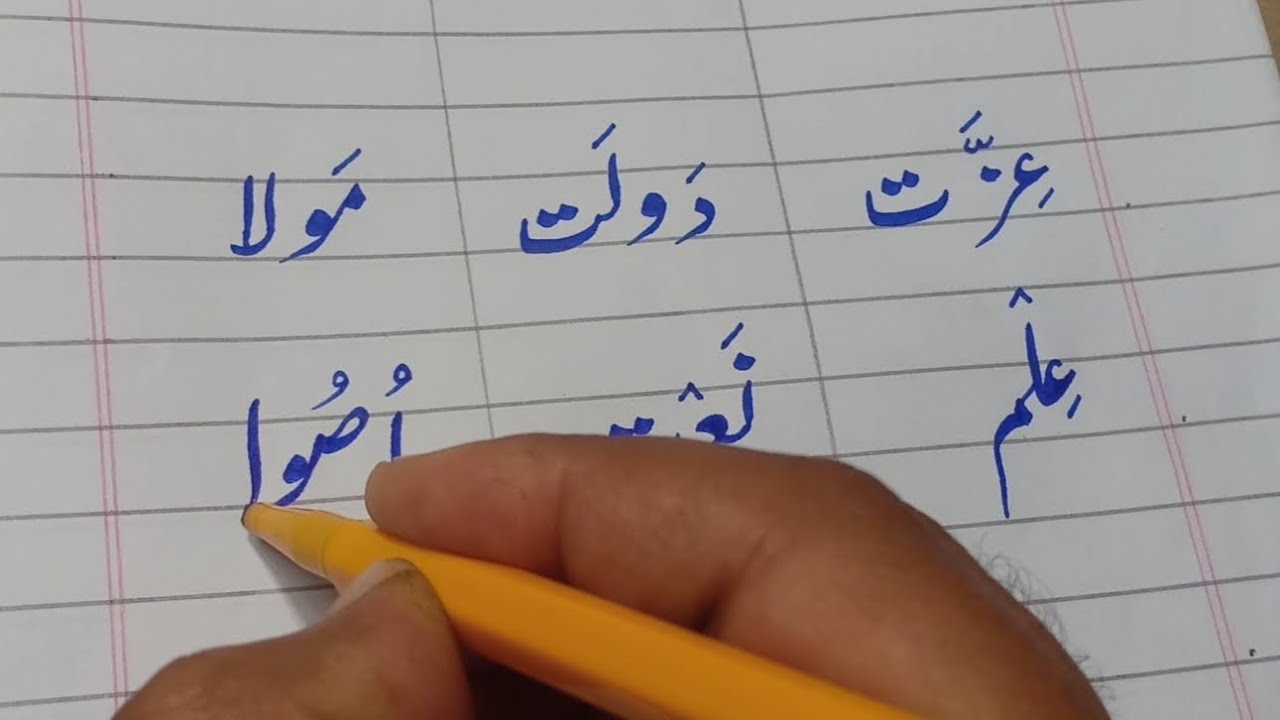 عِزَّت دَولَت مَولا
عِلْم نَعْت اُصُوا